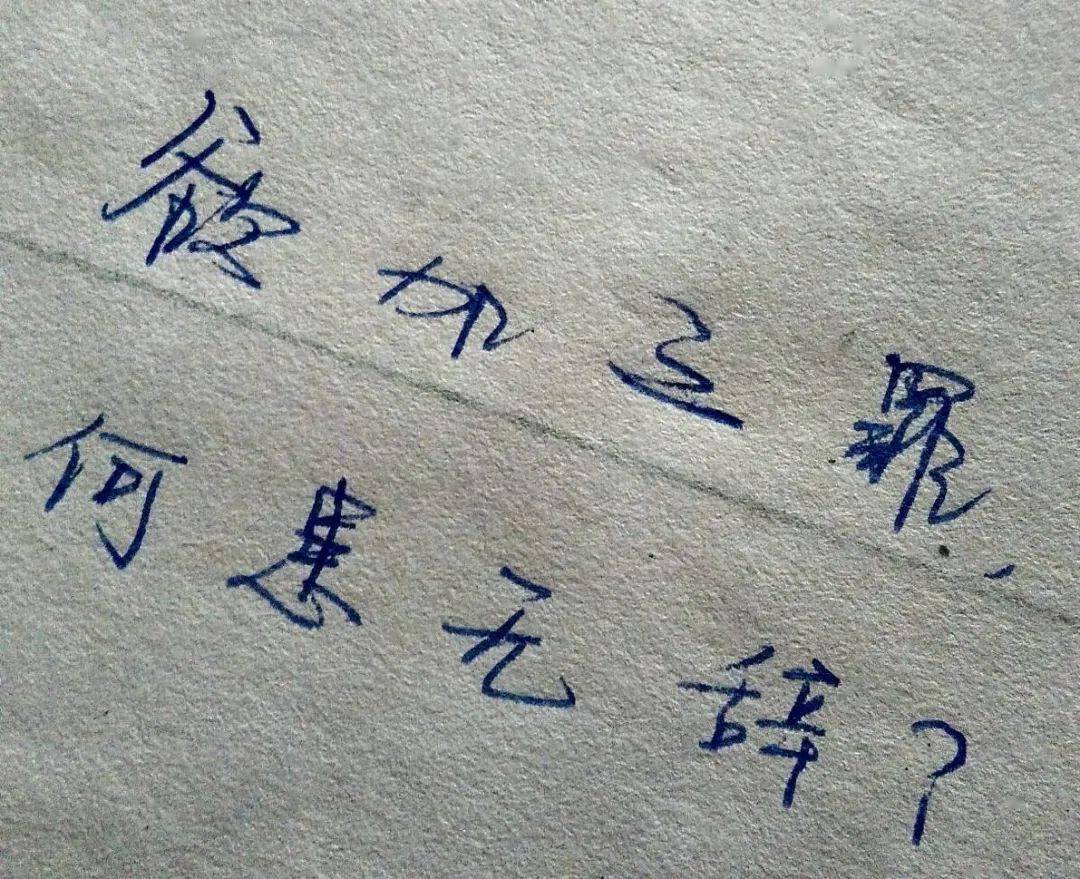 欲加之罪,
何患无辞?